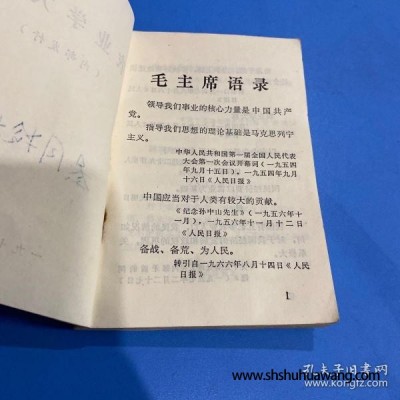 毛主席语录
领导我们事业的核心力量是中国共产
党。
指导我们思想的理论基础是马克思列宁
主义。
中华人民共和国第一届全国人民代表
大会第一次会议开幕词(一九五四
年九月十五日)。一九五四年九月
十六日《人民日报》
中国应当对于人类有较大的贡献。
《纪念孙中山先生》(一九五六年十
一月),一九五六年十一月十二日
《人民日报》
备战、备荒、为人民。
转引自一九六六年八月十四日《人民
日报》
1
孔夫子旧书网
www.shshuhuawang.com